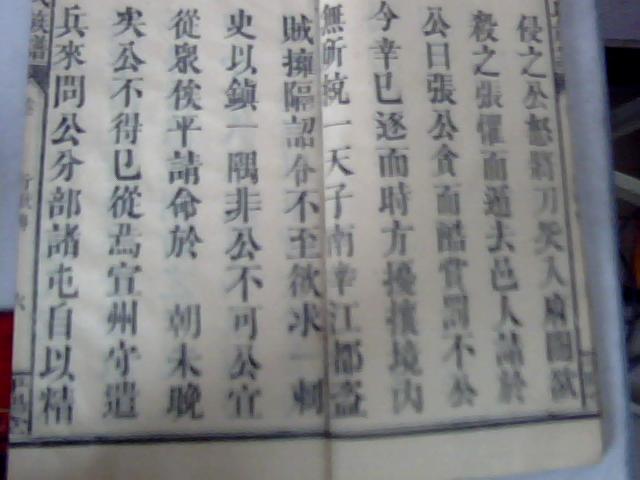 侵之公怒將刀矢入府閤欲
殺之張懼而遁去邑人請於
公曰張公貪而酷賞罰不公
今幸已逐而時方擾攘境內
無所統一天子南幸江都盜
賊擁隔詔令不至欲求一刺
史以鎮一隅非公不可公宜
從衆俟平請命於 朝未晚
矣公不得已從焉宣州守遣
兵來問公分部諸屯自以精
氏族譜
六